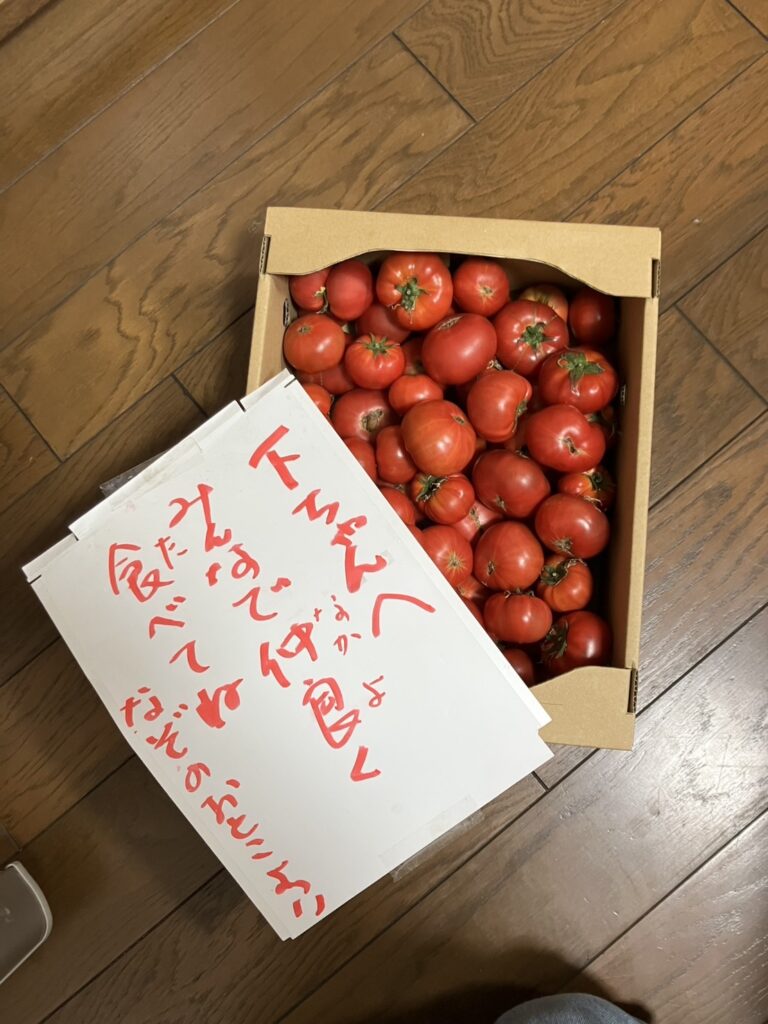 下ちゃんへ
なかよ
みんなで仲良く
た
食べてね
なぞのおとこより